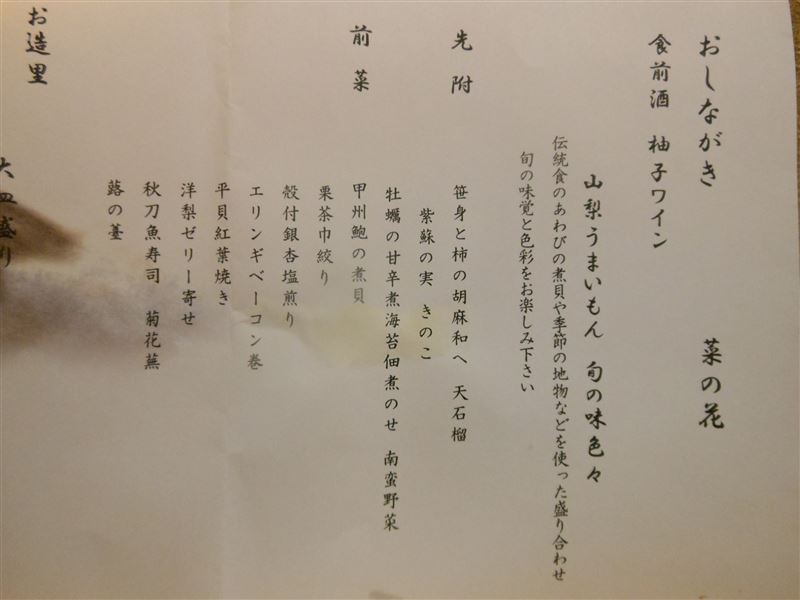 おしながき　菜の花
食前酒　柚子ワイン
山梨うまいもん　旬の味色々
伝統食のあわびの煮貝や季節の地物などを使った盛り合わせ
旬の味覚と色彩をお楽しみ下さい
先附　笹身と柿の胡麻和へ　天石榴
紫蘇の実　きのこ
牡蠣の甘辛煮海苔佃煮のせ　南蛮野菜
前菜　甲州鮑の煮貝
栗茶巾絞り
殻付銀杏塩煎り
エリンギベーコン巻
平貝紅葉焼き
洋梨ゼリー寄せ
秋刀魚寿司　菊花蕪
蕗の薹
お造里　大皿盛り